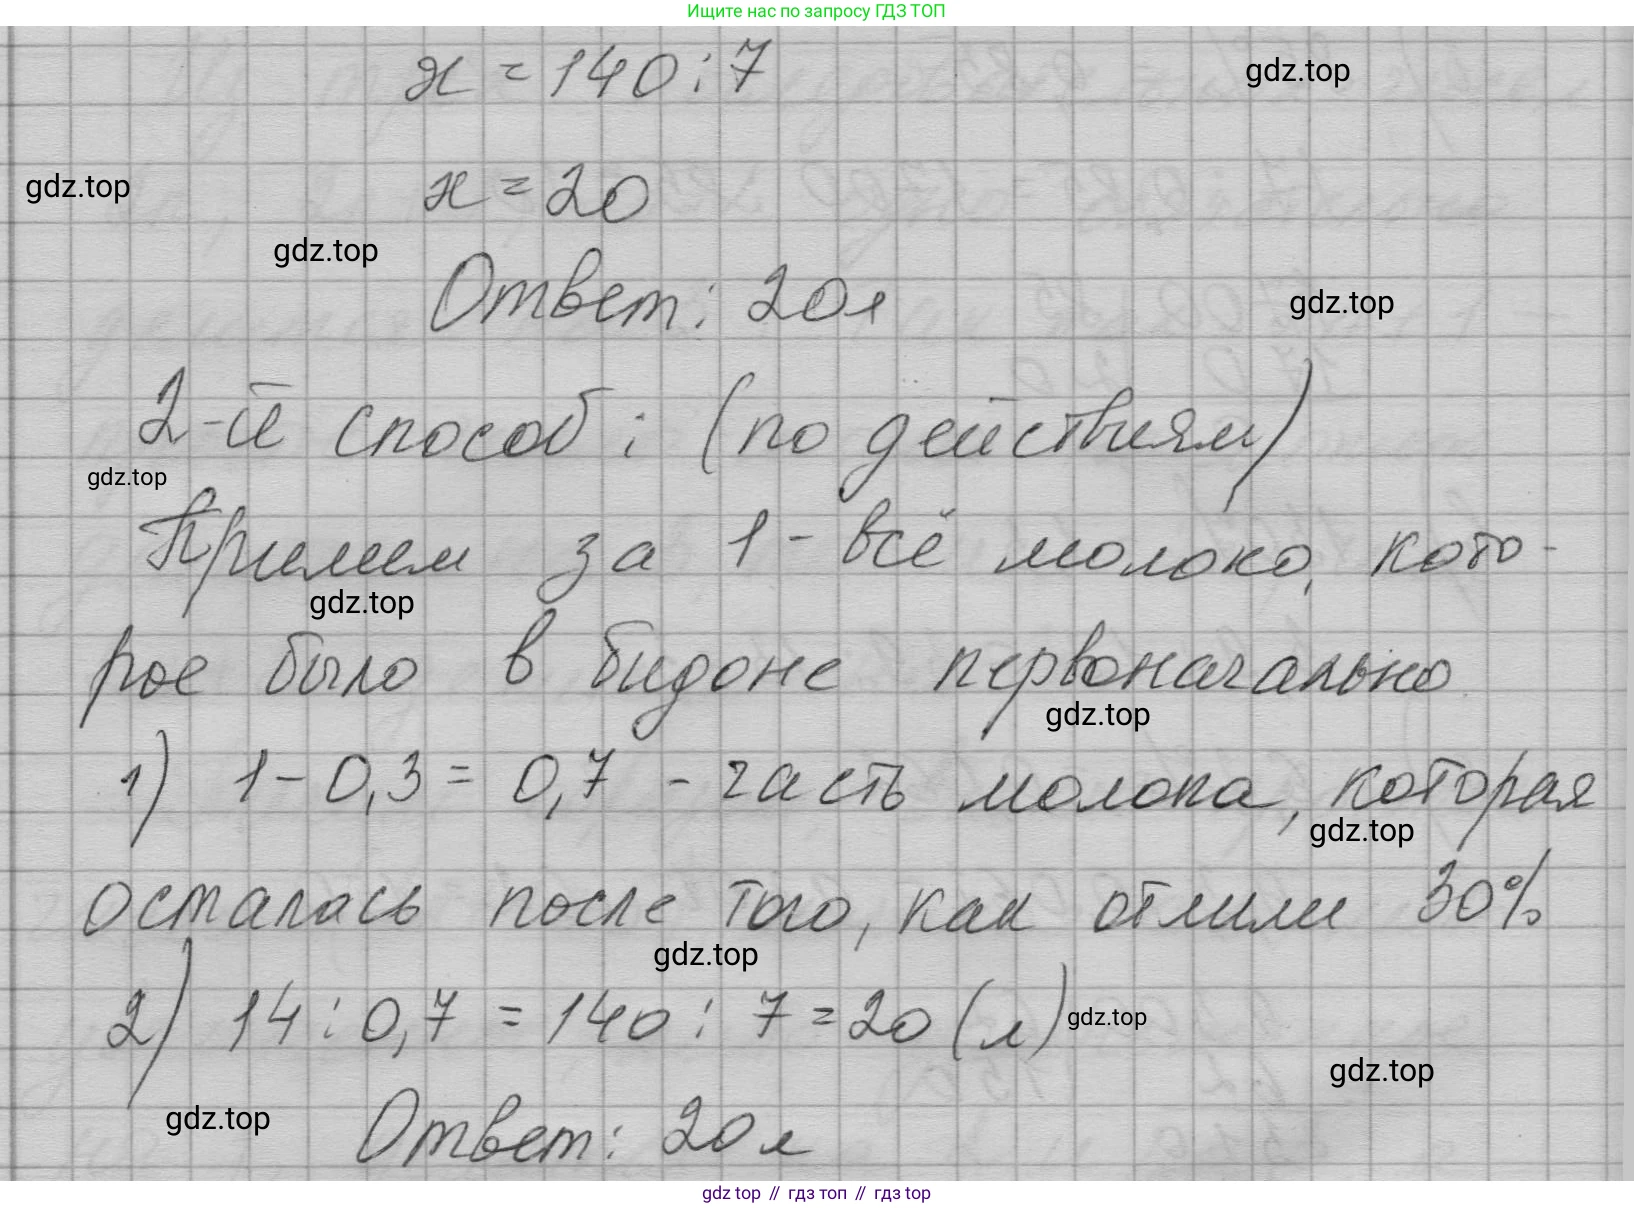 Ищите нас по запросу ГДЗ ТОП
x = 140 : 7
gdz.top
gdz.top
x = 20
gdz.top
Ответ: 20 л
gdz.top
2-й способ: (по действиям)
gdz.top
Примем за 1 - всё молоко, кото-
gdz.top
рое было в бидоне первоначально
gdz.top
1) 1 - 0,3 = 0,7 - часть молока, которая
gdz.top
осталась после того, как отлили 30%
gdz.top
2) 14 : 0,7 = 140 : 7 = 20 (л)
gdz.top
gdz.top
gdz.top
Ответ: 20 л
gdz top // гдз топ // гдз top